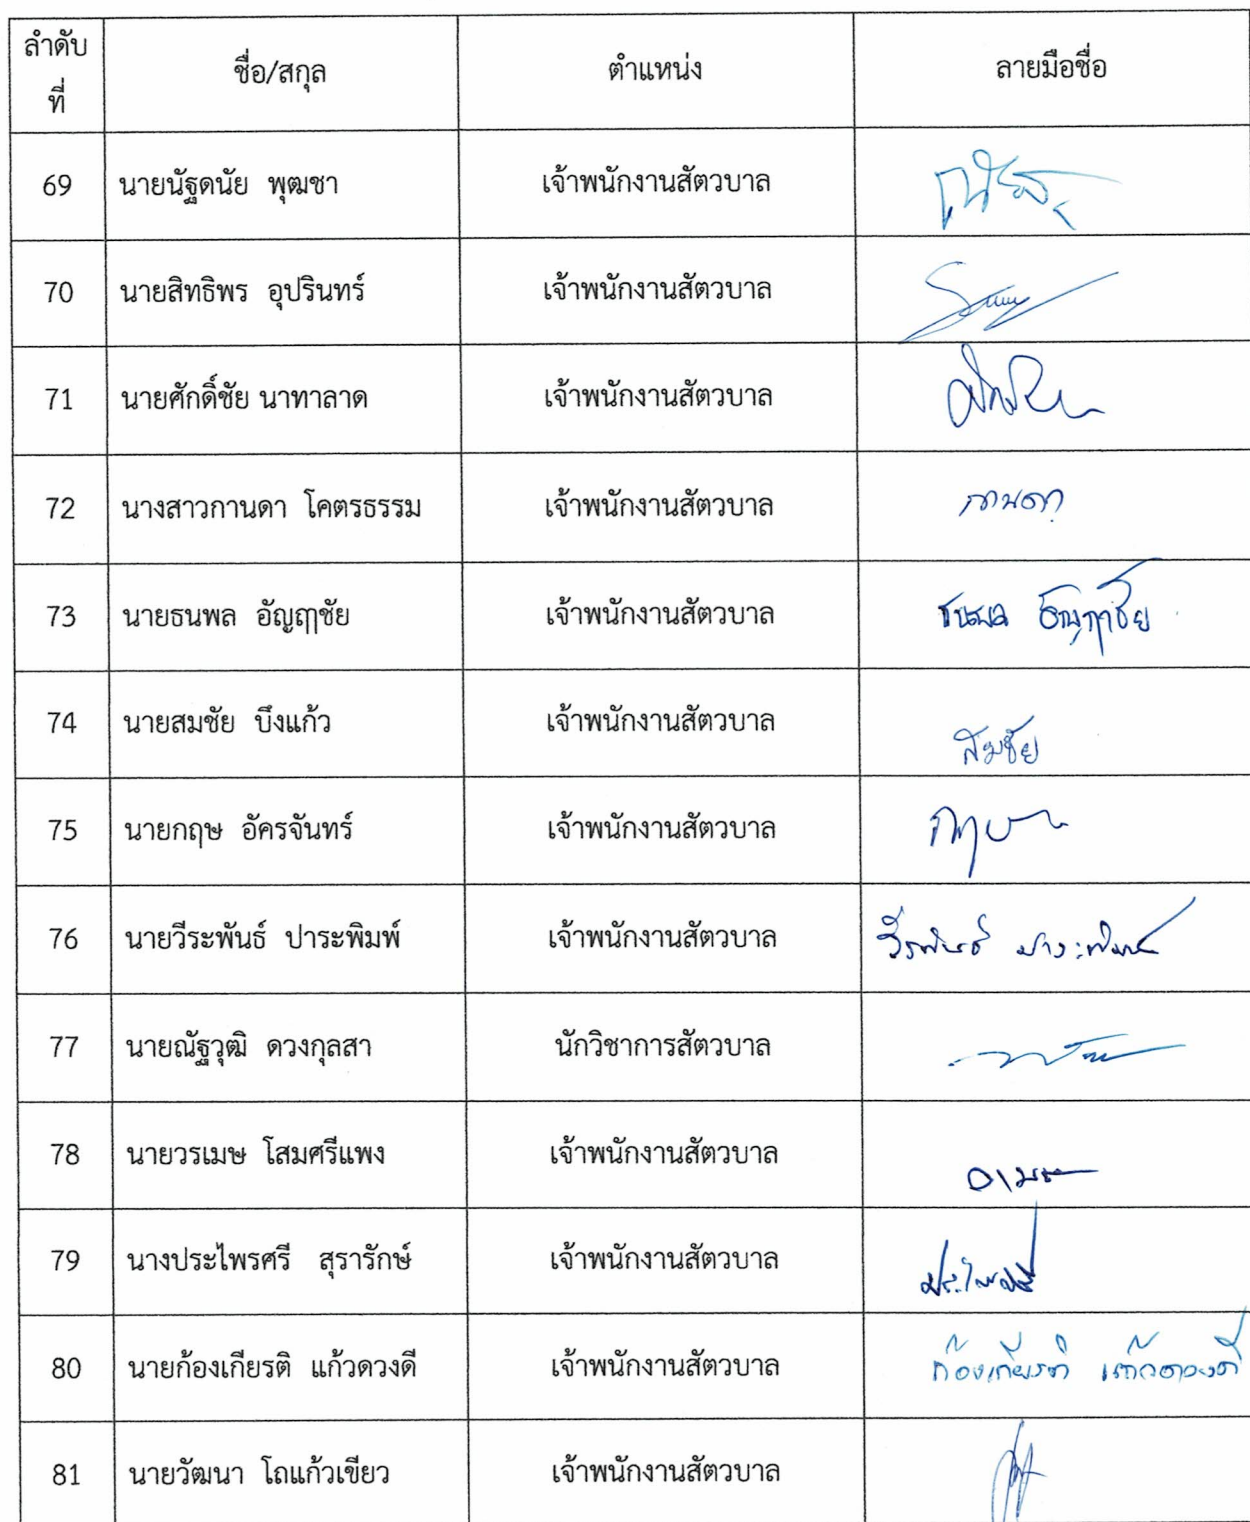 ลำดับ ชื่อ/สกุล ตำแหน่ง ลายมือชื่อ
ที่
69 นายนัฐดนัย พุฒชา เจ้าพนักงานสัตวบาล
70 นายสิทธิพร อุปรินทร์ เจ้าพนักงานสัตวบาล
71 นายศักดิ์ชัย นาทาลาด เจ้าพนักงานสัตวบาล
72 นางสาวกานดา โคตรธรรม เจ้าพนักงานสัตวบาล กานดา
73 นายธนพล อัญฤาชัย เจ้าพนักงานสัตวบาล ธนพล อัญฤาชัย
74 นายสมชัย บึงแก้ว เจ้าพนักงานสัตวบาล สมชัย
75 นายกฤษ อัครจันทร์ เจ้าพนักงานสัตวบาล
76 นายวีระพันธ์ ปาระพิมพ์ เจ้าพนักงานสัตวบาล
77 นายณัฐวุฒิ ดวงกุลสา นักวิชาการสัตวบาล
78 นายวรเมษ โสมศรีแพง เจ้าพนักงานสัตวบาล
79 นางประไพรศรี สุรารักษ์ เจ้าพนักงานสัตวบาล
80 นายก้องเกียรติ แก้วดวงดี เจ้าพนักงานสัตวบาล ก้องเกียรติ แก้วดวงดี
81 นายวัฒนา โถแก้วเขียว เจ้าพนักงานสัตวบาล